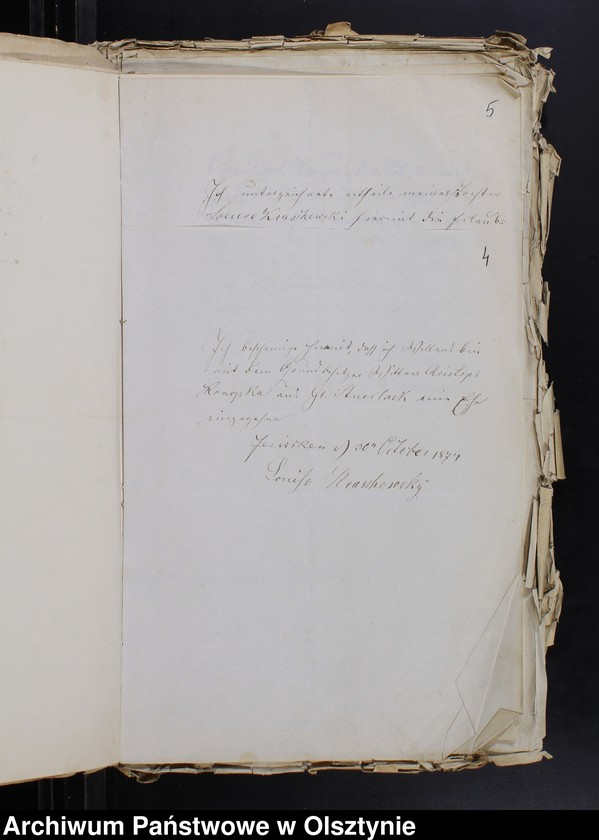 5
Ich unterzeichnete ertheile meiner Tochter
Louise Kraschewski hiermit die Erlaub-
4
Ich bescheinige hiermit, daß ich Willens bin
mit dem Grundbesitzer Wittwer Christoph
Konopka aus Gr. Stuerlack eine Ehe
einzugehen
d 30n October 1874
Louise Kraschewsky
Archiwum Państwowe w Olsztynie